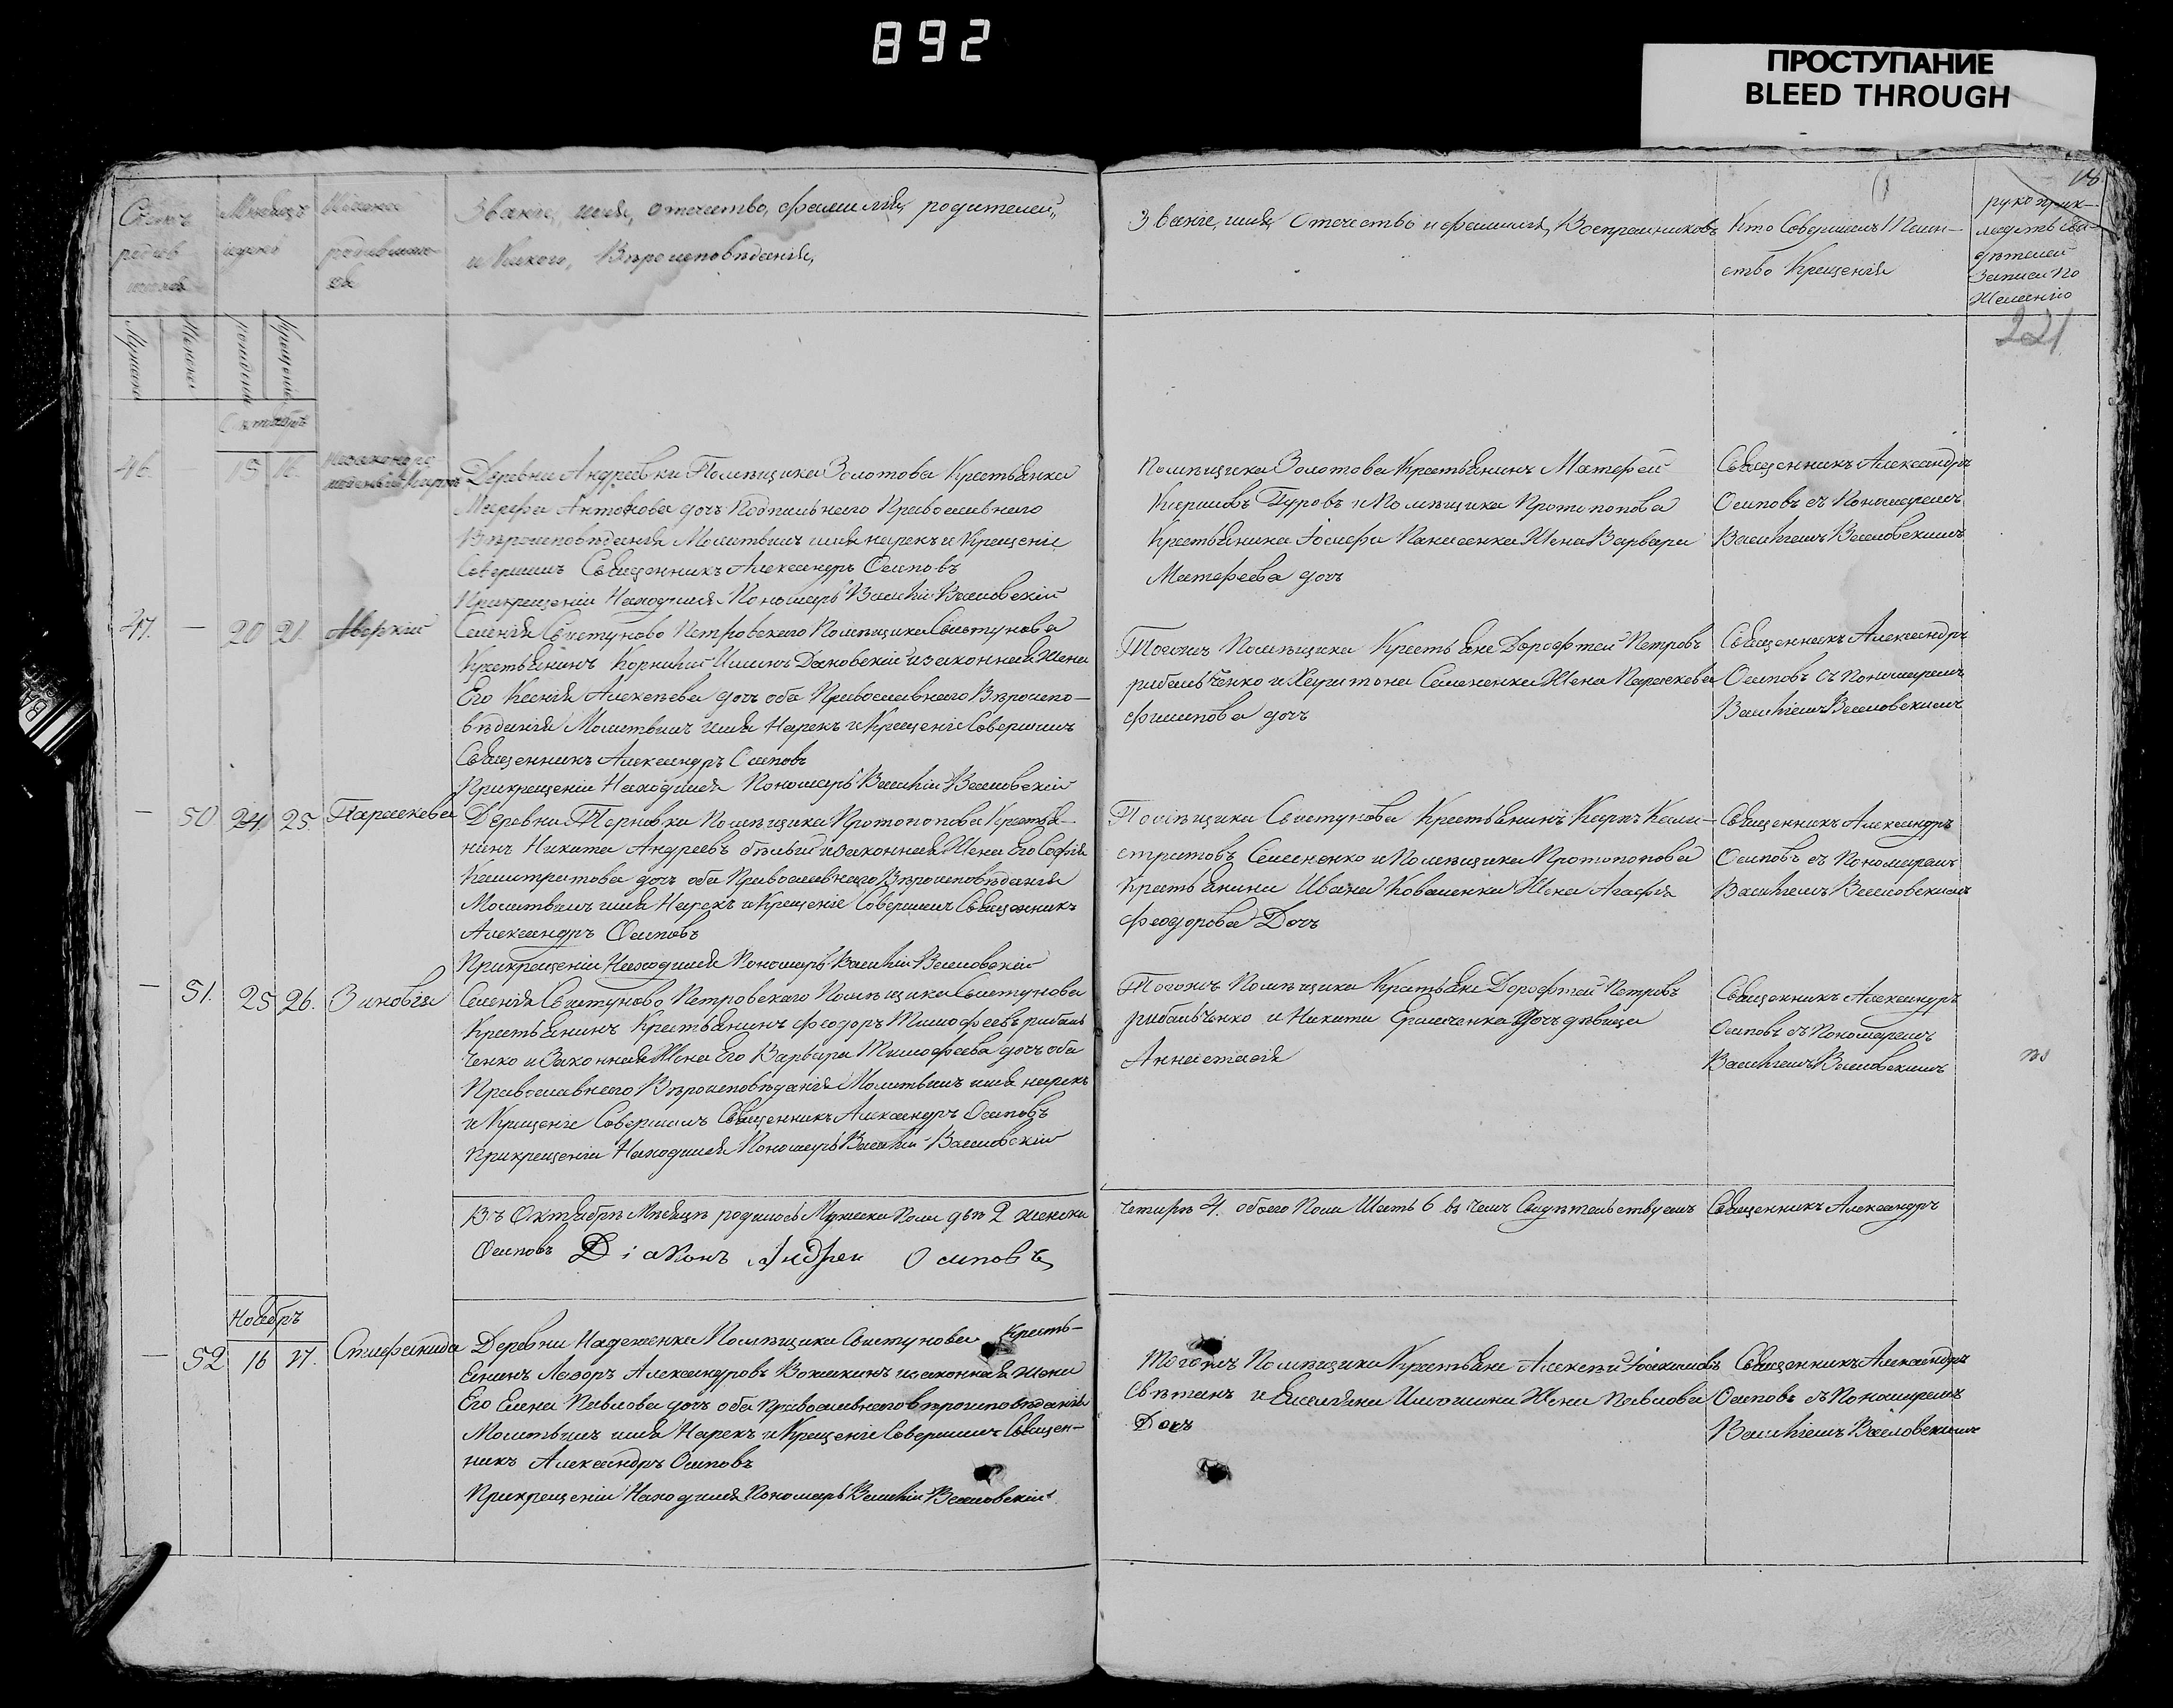 892
ПРОСТУПАНИЕ
BLEED THROUGH
Счетъ родив
Мѣсяцъ
Имена родивших
Званіе, имя, отечество, фамилія, родителей,
и Какого, Вѣроисповѣданія,
Званіе, имя, Отечество и фамилія, Воспріемниковъ
Кто Совершилъ Таин-
ство Крещенія
руко прик-
ладств сви-
дѣтелей
Записи по
Желанію
221
Мужеска
Женска
рожденія
Крещенія
Октябрь
46. — 15 16.
Деревни Андреевки Помѣщика Золотова Крестьянка
Марфа Антонова дочь Православнаго
Вѣроисповѣданія Молитвилъ имя нарекъ и Крещеніе
Совершилъ Священникъ Александръ Осиповъ
Прикрещеніи Находился Пономарь Василій Веселовскій
Помѣщика Золотова Крестьянинъ Матфей
Туровъ и Помѣщика Протопопова
Крестьянина Іосифа Панасенка Жена Варвара
Матфеева дочь
Священникъ Александръ
Осиповъ съ Пономаремъ
Василіемъ Веселовскимъ
47. — 20 21. Аверкій
Селенія Свистуново Петровского Помѣщика Свистунова
Крестьянинъ Корнилій Дановскій и законная Жена
Его Ксенія Алексѣева дочь оба Православнаго Вѣроиспо-
вѣданія Молитвилъ имя Нарекъ и Крещеніе Совершилъ
Священникъ Александръ Осиповъ
Прикрещеніи Находился Пономарь Василій Веселовскій
Тогожъ Помѣщика Крестьяне Дорофтей Петровъ
рибальченко и Харитона Семененка Жена Параскева
Филипова дочь
Священникъ Александръ
Осиповъ съ Пономаремъ
Василіемъ Веселовскимъ
— 50 24. 25. Параскева
Деревни Терновки Помѣщика Протопопова Крестья-
нинъ Никита Андреевъ бѣлый и законная Жена Его Софія
Калистратова дочь оба Православнаго Вѣроисповѣданія
Молитвилъ имя Нарекъ и Крещеніе Совершилъ Священникъ
Александръ Осиповъ
Прикрещеніи Находился Пономарь Василій Веселовскій
Помѣщика Свистунова Крестьянинъ Карпъ Кали-
стратовъ Семененко и Помѣщика Протопопова
Крестьянина Ивана Коваленка Жена Агафія
Феодорова Дочь
Священникъ Александръ
Осиповъ съ Пономаремъ
Василіемъ Веселовскимъ
— 51. 25 26. Зиновія
Селенія Свистуново Петровского Помѣщика Свистунова
Крестьянинъ Крестьянинъ Феодоръ Тимофеевъ рибаль
ченко и Законная Жена Его Варвара Тимофеева дочь оба
Православнаго Вѣроисповѣданія Молитвилъ имя нарекъ
и Крещеніе Совершилъ Священникъ Александръ Осиповъ
Прикрещеніи Находился Пономарь Василій Веселовскій
Тогожъ Помѣщика Крестьяне Дорофтей Петровъ
рибальченко и Никити Ермаченка Дочь дѣвица
Анастасія
Священникъ Александръ
Осиповъ съ Пономаремъ
Василіемъ Веселовскимъ
Въ Октябрѣ Мѣсяцѣ родилось Мужеска Пола два 2 женска
четире 4. обоего Пола Шесть 6 въ чемъ Свидѣтельствуемъ Священникъ Александръ
Осиповъ Діаконъ Андреи Осиповъ
Ноябрь
— 52 16 17. Стефанида
Деревни Надеженки Помѣщика Свистунова Кресть-
янинъ Лазоръ Александровъ и законная жена
Его Елена Павлова дочь оба православнаго вѣроисповѣданія
Молитвилъ имя Нарекъ и Крещеніе Совершилъ Священ-
никъ Александръ Осиповъ
Прикрещеніи Находился Пономарь Василій Веселовскій
Тогожъ Помѣщика Крестьяне Алексѣй
и Жена Павлова
Дочь
Священникъ Александръ
Осиповъ съ Пономаремъ
Василіемъ Веселовскимъ